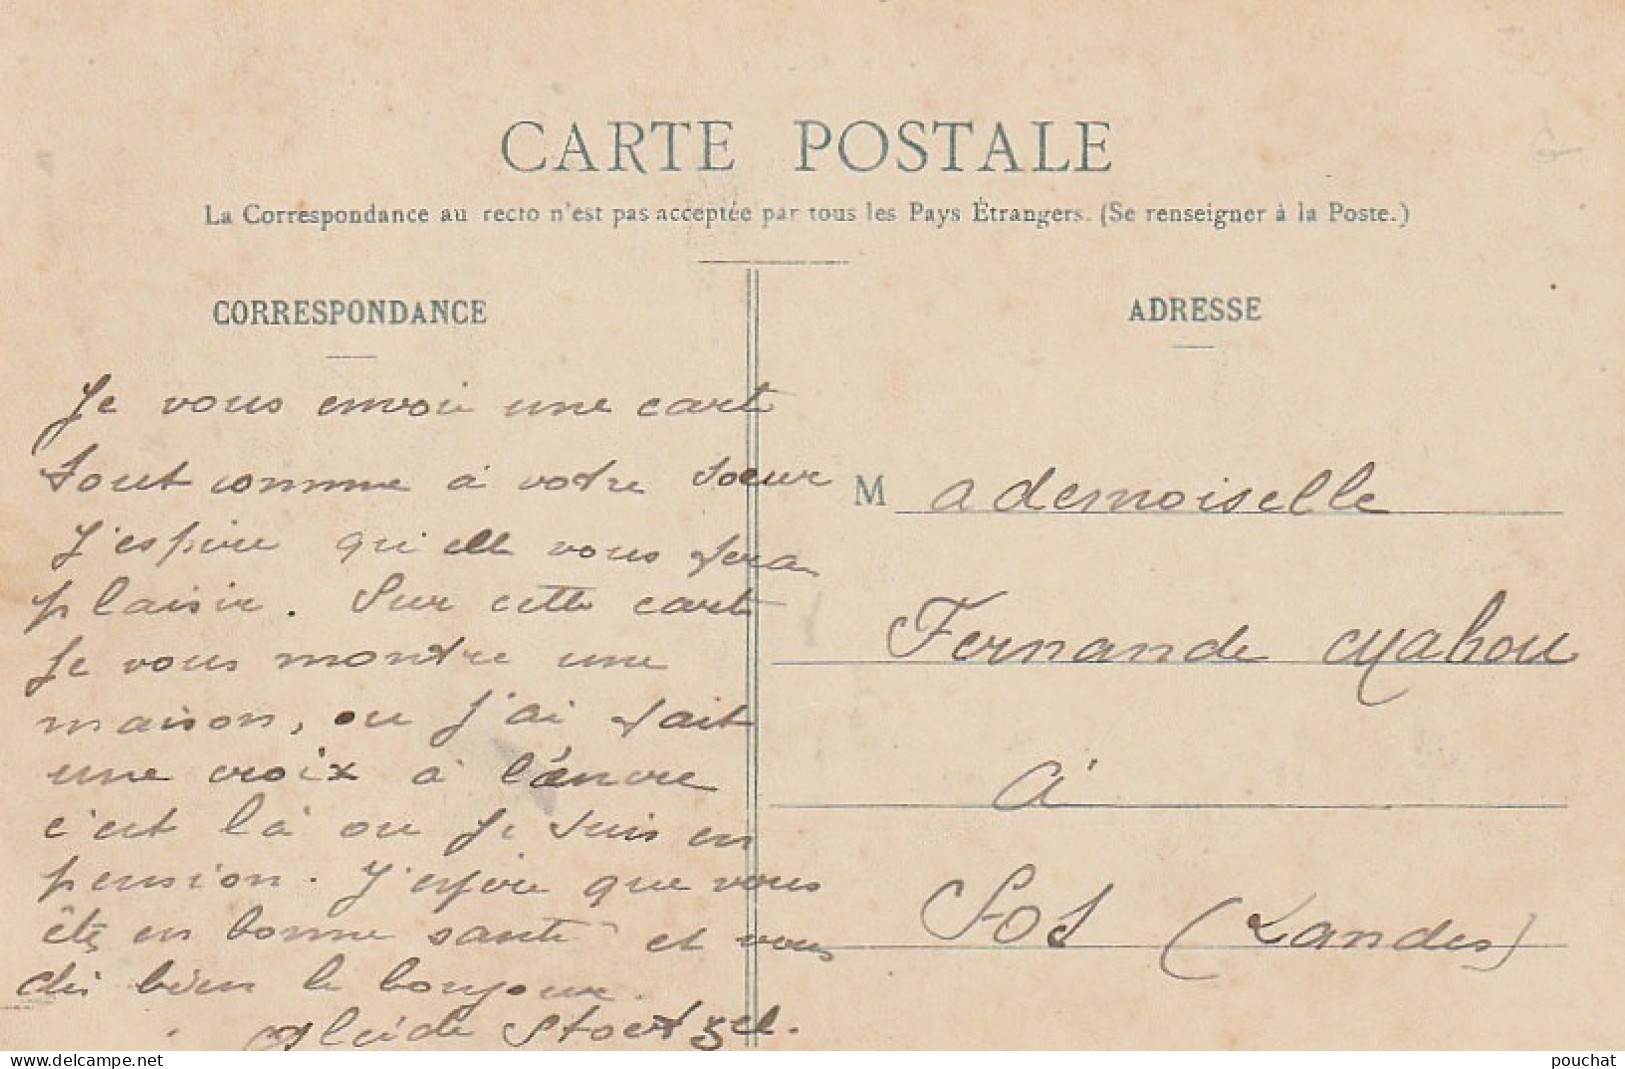 CARTE POSTALE
La Correspondance au recto n'est pas acceptée par tous les Pays Étrangers. (Se renseigner à la Poste.)
CORRESPONDANCE
Je vous envoie une carte
tout comme à votre soeur
J'espère qu'elle vous fera
plaisir. Sur cette carte
Je vous montre une
maison, ou j'ai fait
une croix à l'encre
c'est là ou je suis en
pension. J'espère que vous
êtes en bonne santé et vous
dis bien le bonjour.
Stoetzel.
ADRESSE
Mademoiselle
Fernande Mahou
à
Sos (Landes)
www.delcampe.net
pouchat